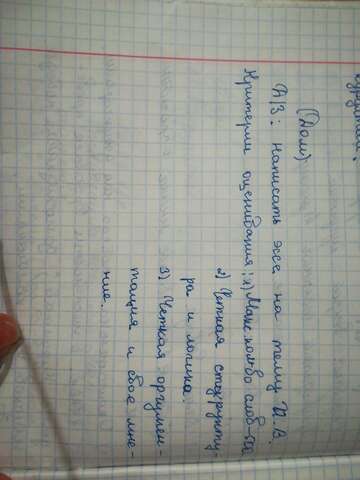 (Дом)
Д/З: написать эссе на тему И.В.
Критерии оценивания: 1) Макс кол-во слов -
2) Четкая структу-
ра и логика.
3) Четкая аргумен-
тация и свое мне-
ние.